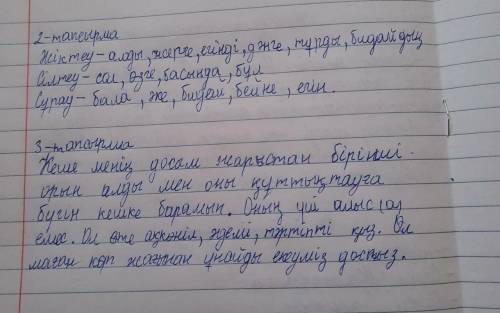 2-тапсырма
Жіктеу - алды, жерге, егінді, дәнге, тұрды, бидайдың
Сілтеу - сол, өзге, басында, бұл
Сұрау - бала, же, бидай, бейне, егін.
3-тапсырма
Кеше менің досым жарыстан бірінші
орын алды мен оны құттықтауға
бүгін кешке барамын. Оның үйі алыс
емес. Ол өте ақкөңіл, әдемі, тәртіпті қыз. Ол
маған көп жағынан ұнайды екеуміз достыз.